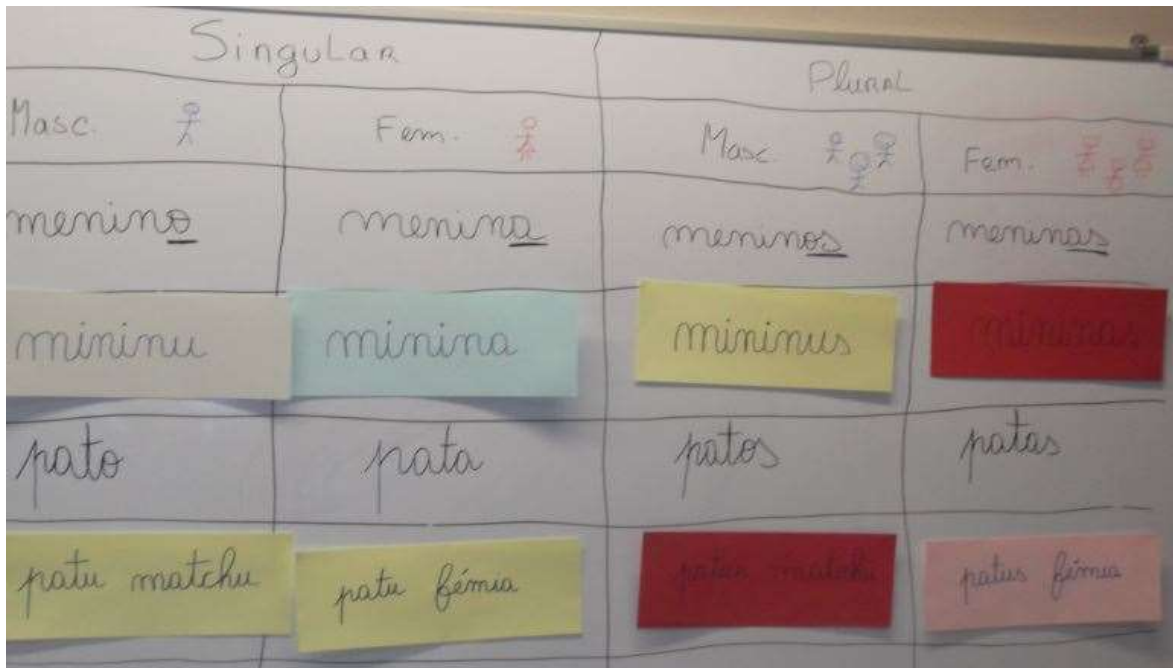 Singular Plural
Masc. Fem. Masc Fem.
menino menina meninos meninas
mininu minina mininus mininas
pato pata patos patas
patu matchu patu fémia patus matchu patus fémia